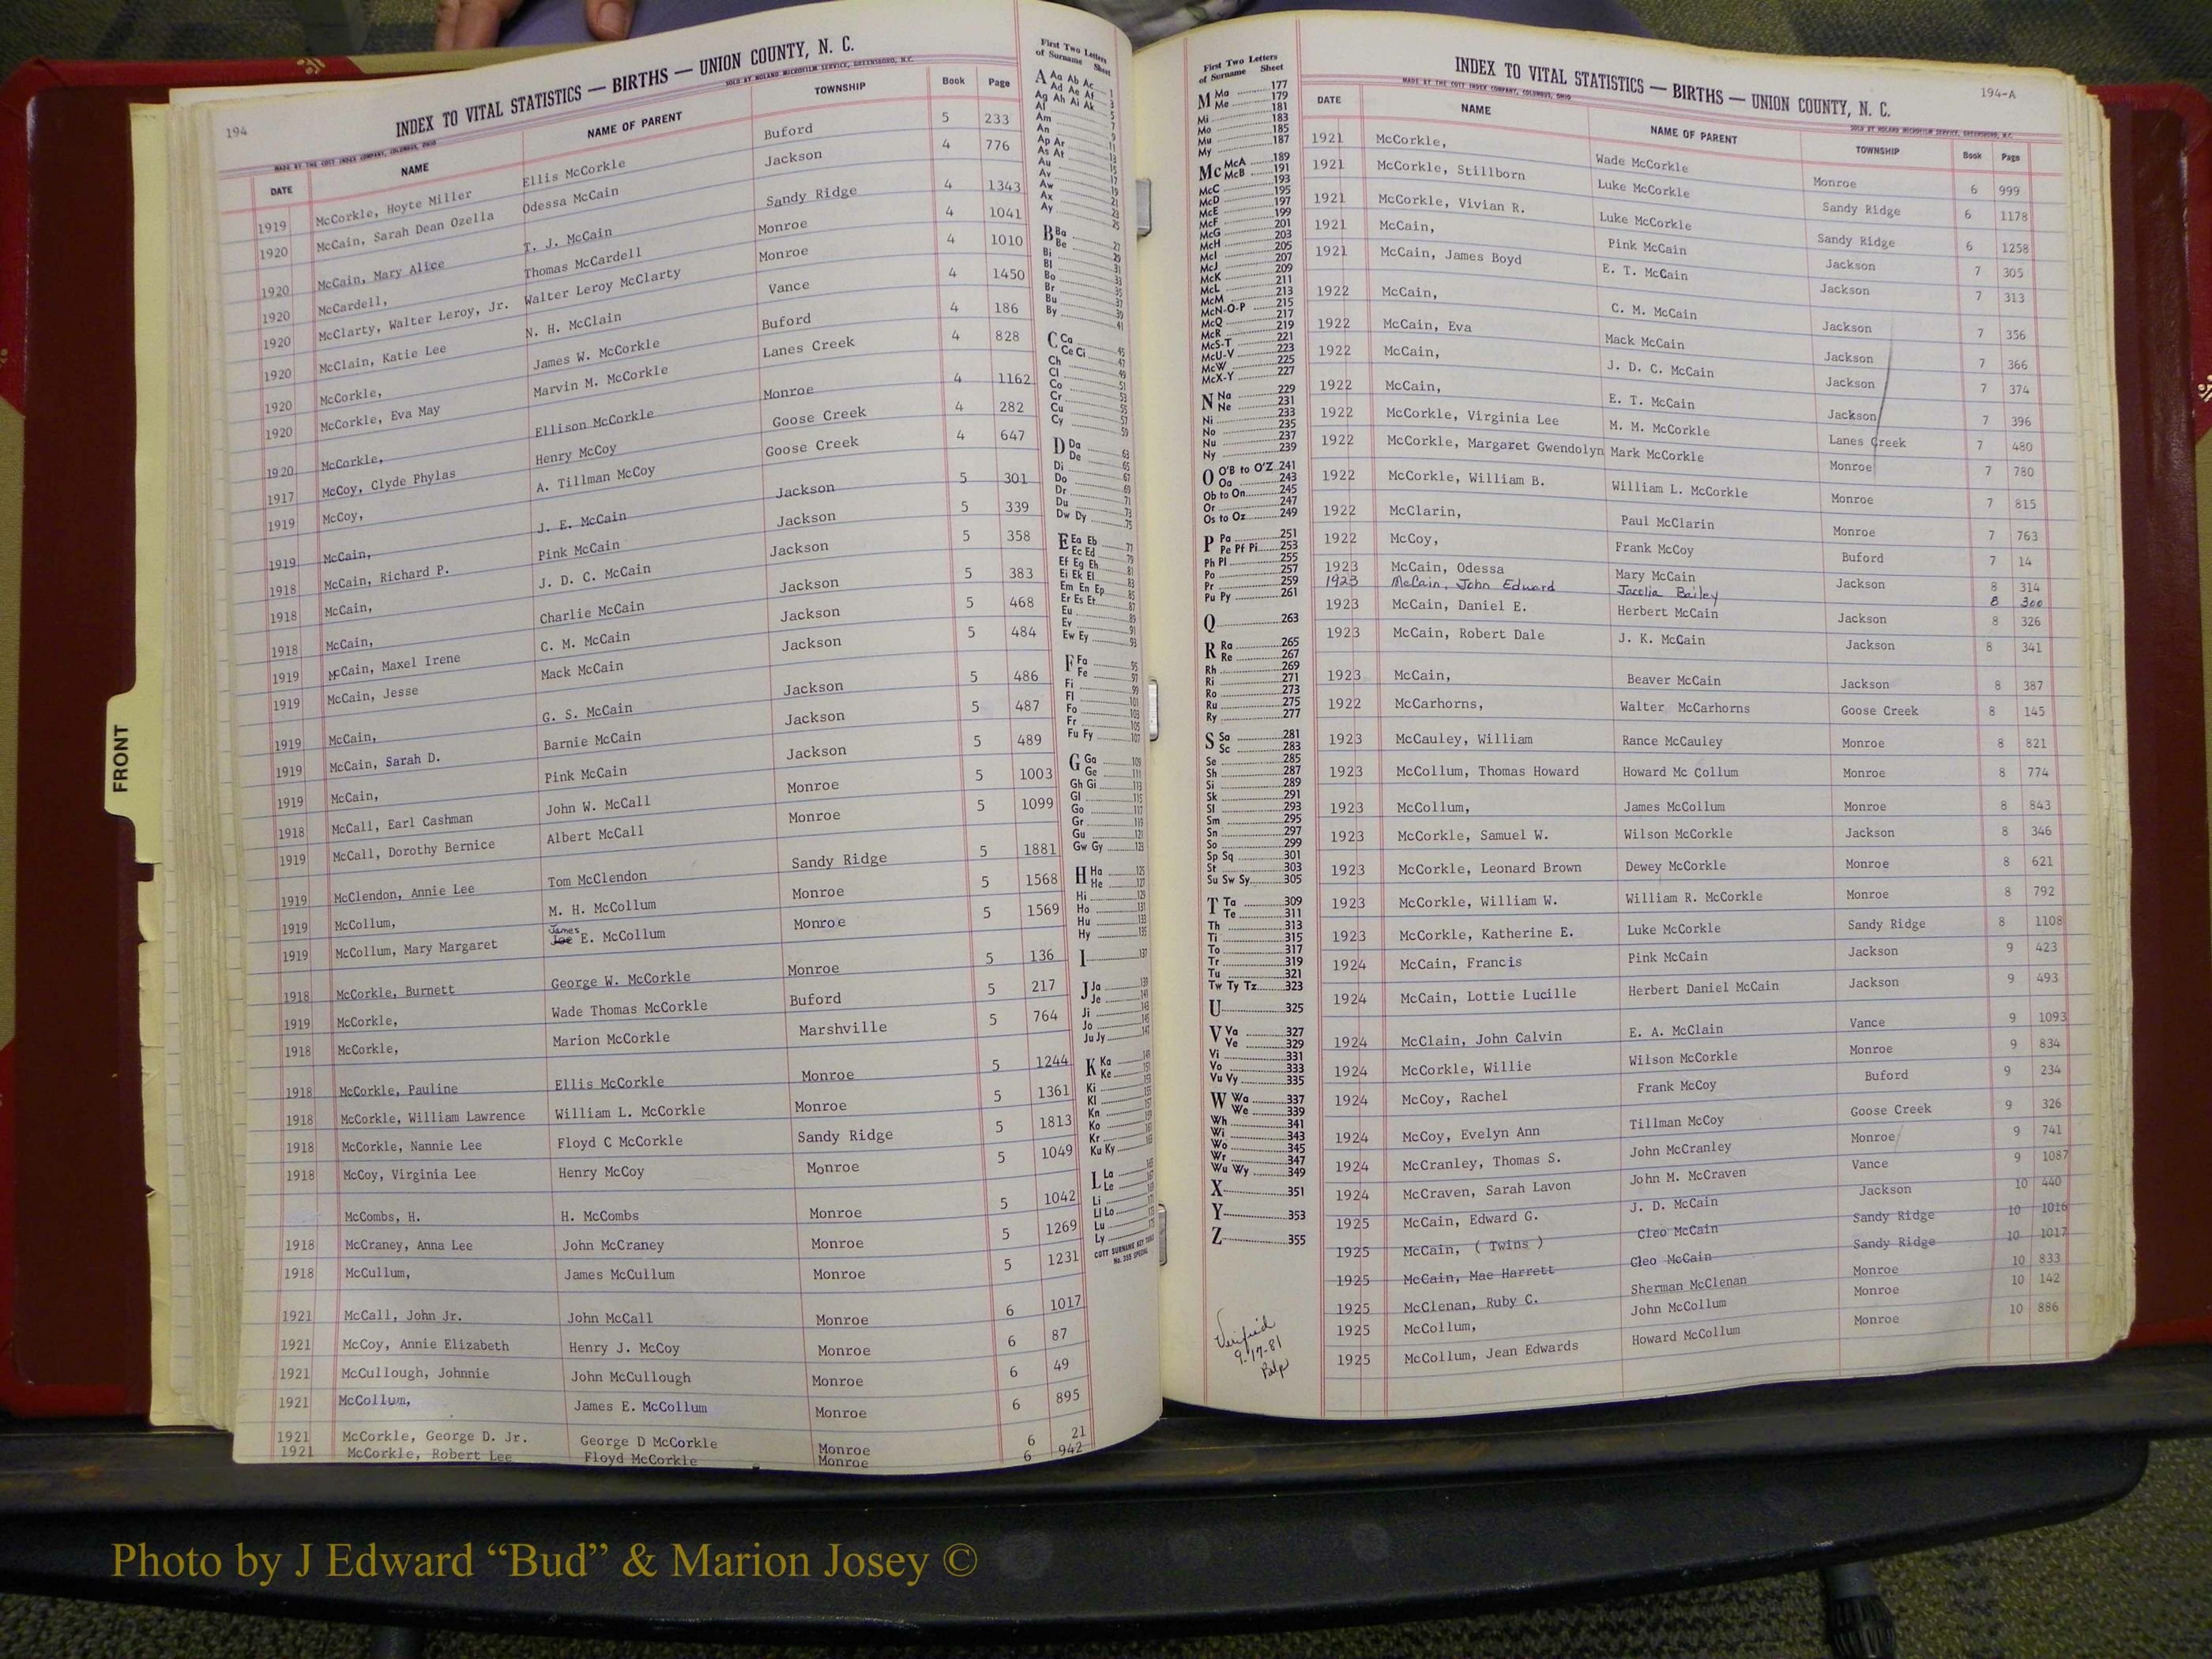 194
INDEX TO VITAL STATISTICS — BIRTHS — UNION COUNTY, N. C.
MADE BY THE COTT INDEX COMPANY, COLUMBUS, OHIO SOLD BY NOLAND MICROFILM SERVICE, GREENSBORO, N.C.
DATE NAME NAME OF PARENT TOWNSHIP Book Page
1919 McCorkle, Hoyte Miller Ellis McCorkle Buford 5 233
1920 McCain, Sarah Dean Ozella Odessa McCain Jackson 4 776
1920 McCain, Mary Alice T. J. McCain Sandy Ridge 4 1343
1920 McCardell, Thomas McCardell Monroe 4 1041
1920 McClarty, Walter Leroy, Jr. Walter Leroy McClarty Monroe 4 1010
1920 McClain, Katie Lee N. H. McClain Vance 4 1450
1920 McCorkle, James W. McCorkle Buford 4 186
1920 McCorkle, Eva May Marvin M. McCorkle Lanes Creek 4 828
1920 McCorkle, Ellison McCorkle Monroe 4 1162
1917 McCoy, Clyde Phylas Henry McCoy Goose Creek 4 282
1919 McCoy, A. Tillman McCoy Goose Creek 4 647
1919 McCain, J. E. McCain Jackson 5 301
1918 McCain, Richard P. Pink McCain Jackson 5 339
1918 McCain, J. D. C. McCain Jackson 5 358
1918 McCain, Charlie McCain Jackson 5 383
1919 McCain, Maxel Irene C. M. McCain Jackson 5 468
1919 McCain, Jesse Mack McCain Jackson 5 484
1919 McCain, G. S. McCain Jackson 5 486
1919 McCain, Sarah D. Barnie McCain Jackson 5 487
1919 McCain, Pink McCain Jackson 5 489
1918 McCall, Earl Cashman John W. McCall Monroe 5 1003
1919 McCall, Dorothy Bernice Albert McCall Monroe 5 1099
1919 McClendon, Annie Lee Tom McClendon Sandy Ridge 5 1881
1919 McCollum, M. H. McCollum Monroe 5 1568
James
1919 McCollum, Mary Margaret Joe E. McCollum Monroe 5 1569
1918 McCorkle, Burnett George W. McCorkle Monroe 5 136
1919 McCorkle, Wade Thomas McCorkle Buford 5 217
1918 McCorkle, Marion McCorkle Marshville 5 764
1918 McCorkle, Pauline Ellis McCorkle Monroe 5 1244
1918 McCorkle, William Lawrence William L. McCorkle Monroe 5 1361
1918 McCorkle, Nannie Lee Floyd C McCorkle Sandy Ridge 5 1813
1918 McCoy, Virginia Lee Henry McCoy Monroe 5 1049
McCombs, H. H. McCombs Monroe 5 1042
1918 McCraney, Anna Lee John McCraney Monroe 5 1269
1918 McCullum, James McCullum Monroe 5 1231
1921 McCall, John Jr. John McCall Monroe 6 1017
1921 McCoy, Annie Elizabeth Henry J. McCoy Monroe 6 87
1921 McCullough, Johnnie John McCullough Monroe 6 49
1921 McCollum, James E. McCollum Monroe 6 895
1921 McCorkle, George D. Jr. George D McCorkle Monroe 6 21
1921 McCorkle, Robert Lee Floyd McCorkle Monroe 6 942
First Two Letters
of Surname Sheet
A Aa Ab Ac 1
Ad Ae Af 3
Ag Ah Ai Ak 5
Al 7
Am 9
An 11
Ap Ar 13
As At 15
Au 17
Av 19
Aw 21
Ax 23
Ay 25
B Ba 27
Be 29
Bi 31
Bl 33
Bo 35
Br 37
Bu 39
By 41
C Ca 45
Ce Ci 47
Ch 49
Cl 51
Co 53
Cr 55
Cu 57
Cy 59
D Da 63
De 65
Di 67
Do 69
Dr 71
Du 73
Dw Dy 75
E Ea Eb 77
Ec Ed 79
Ef Eg Eh 81
Ei Ek El 83
Em En Ep 85
Er Es Et 87
Eu 89
Ev 91
Ew Ey 93
F Fa 95
Fe 97
Fi 99
Fl 101
Fo 103
Fr 105
Fu Fy 107
G Ga 109
Ge 111
Gh Gi 113
Gl 115
Go 117
Gr 119
Gu 121
Gw Gy 123
H Ha 125
He 127
Hi 129
Ho 131
Hu 133
Hy 135
I 137
J Ja 139
Je 141
Ji 143
Jo 145
Ju Jy 147
K Ka 149
Ke 151
Ki
Kl
Kn
Ko
Kr
Ku Ky
L La
Le
Li
Ll Lo
Lu
Ly
COTT SURNAME KEY TABLE
FRONT
194-A
INDEX TO VITAL STATISTICS — BIRTHS — UNION COUNTY, N. C.
MADE BY THE COTT INDEX COMPANY, COLUMBUS, OHIO SOLD BY NOLAND MICROFILM SERVICE, GREENSBORO, N.C.
First Two Letters
of Surname Sheet
M Ma 177
Me 179
Mi 181
Mo 183
Mu 185
My 187
Mc McA 189
McB 191
McC 193
McD 195
McE 197
McF 199
McG 201
McH 203
McI 205
McJ 207
McK 209
McL 211
McM 213
McN-O-P 215
McQ 217
McR 219
McS-T 221
McU-V 223
McW 225
McX-Y 227
N Na 229
Ne 231
Ni 233
No 235
Nu 237
Ny 239
O O'B to O'Z 241
Oa 243
Ob to On 245
Or 247
Os to Oz 249
P Pa 251
Pe Pf Pi 253
Ph Pl 255
Po 257
Pr 259
Pu Py 261
Q 263
R Ra 265
Re 267
Rh 269
Ri 271
Ro 273
Ru 275
Ry 277
S Sa 281
Sc 283
Se 285
Sh 287
Si 289
Sk 291
Sl 293
Sm 295
Sn 297
So 299
Sp Sq 301
St 303
Su Sw Sy 305
T Ta 309
Te 311
Th 313
Ti 315
To 317
Tr 319
Tu 321
Tw Ty Tz 323
U 325
V Va 327
Ve 329
Vi 331
Vo 333
Vu Vy 335
W Wa 337
We 339
Wh 341
Wi 343
Wo 345
Wr 347
Wu Wy 349
X 351
Y 353
Z 355
Verified
9-17-81
DATE NAME NAME OF PARENT TOWNSHIP Book Page
1921 McCorkle, Wade McCorkle Monroe 6 999
1921 McCorkle, Stillborn Luke McCorkle Sandy Ridge 6 1178
1921 McCorkle, Vivian R. Luke McCorkle Sandy Ridge 6 1258
1921 McCain, Pink McCain Jackson 7 305
1921 McCain, James Boyd E. T. McCain Jackson 7 313
1922 McCain, C. M. McCain Jackson 7 356
1922 McCain, Eva Mack McCain Jackson 7 366
1922 McCain, J. D. C. McCain Jackson 7 374
1922 McCain, E. T. McCain Jackson 7 396
1922 McCorkle, Virginia Lee M. M. McCorkle Lanes Creek 7 480
1922 McCorkle, Margaret Gwendolyn Mark McCorkle Monroe 7 780
1922 McCorkle, William B. William L. McCorkle Monroe 7 815
1922 McClarin, Paul McClarin Monroe 7 763
1922 McCoy, Frank McCoy Buford 7 14
1923 McCain, Odessa Mary McCain Jackson 8 314
1923 McCain, John Edward Jacolia Bailey 8 300
1923 McCain, Daniel E. Herbert McCain Jackson 8 326
1923 McCain, Robert Dale J. K. McCain Jackson 8 341
1923 McCain, Beaver McCain Jackson 8 387
1922 McCarhorns, Walter McCarhorns Goose Creek 8 145
1923 McCauley, William Rance McCauley Monroe 8 821
1923 McCollum, Thomas Howard Howard Mc Collum Monroe 8 774
1923 McCollum, James McCollum Monroe 8 843
1923 McCorkle, Samuel W. Wilson McCorkle Jackson 8 346
1923 McCorkle, Leonard Brown Dewey McCorkle Monroe 8 621
1923 McCorkle, William W. William R. McCorkle Monroe 8 792
1923 McCorkle, Katherine E. Luke McCorkle Sandy Ridge 8 1108
1924 McCain, Francis Pink McCain Jackson 9 423
1924 McCain, Lottie Lucille Herbert Daniel McCain Jackson 9 493
1924 McClain, John Calvin E. A. McClain Vance 9 1093
1924 McCorkle, Willie Wilson McCorkle Monroe 9 834
1924 McCoy, Rachel Frank McCoy Buford 9 234
1924 McCoy, Evelyn Ann Tillman McCoy Goose Creek 9 326
1924 McCranley, Thomas S. John McCranley Monroe 9 741
1924 McCraven, Sarah Lavon John M. McCraven Vance 9 1087
1925 McCain, Edward G. J. D. McCain Jackson 10 440
1925 McCain, ( Twins ) Cleo McCain Sandy Ridge 10 1016
1925 McCain, Mae Harrett Cleo McCain Sandy Ridge 10 1017
1925 McClenan, Ruby C. Sherman McClenan Monroe 10 833
1925 McCollum, John McCollum Monroe 10 142
1925 McCollum, Jean Edwards Howard McCollum Monroe 10 886
Photo by J Edward “Bud” & Marion Josey ©